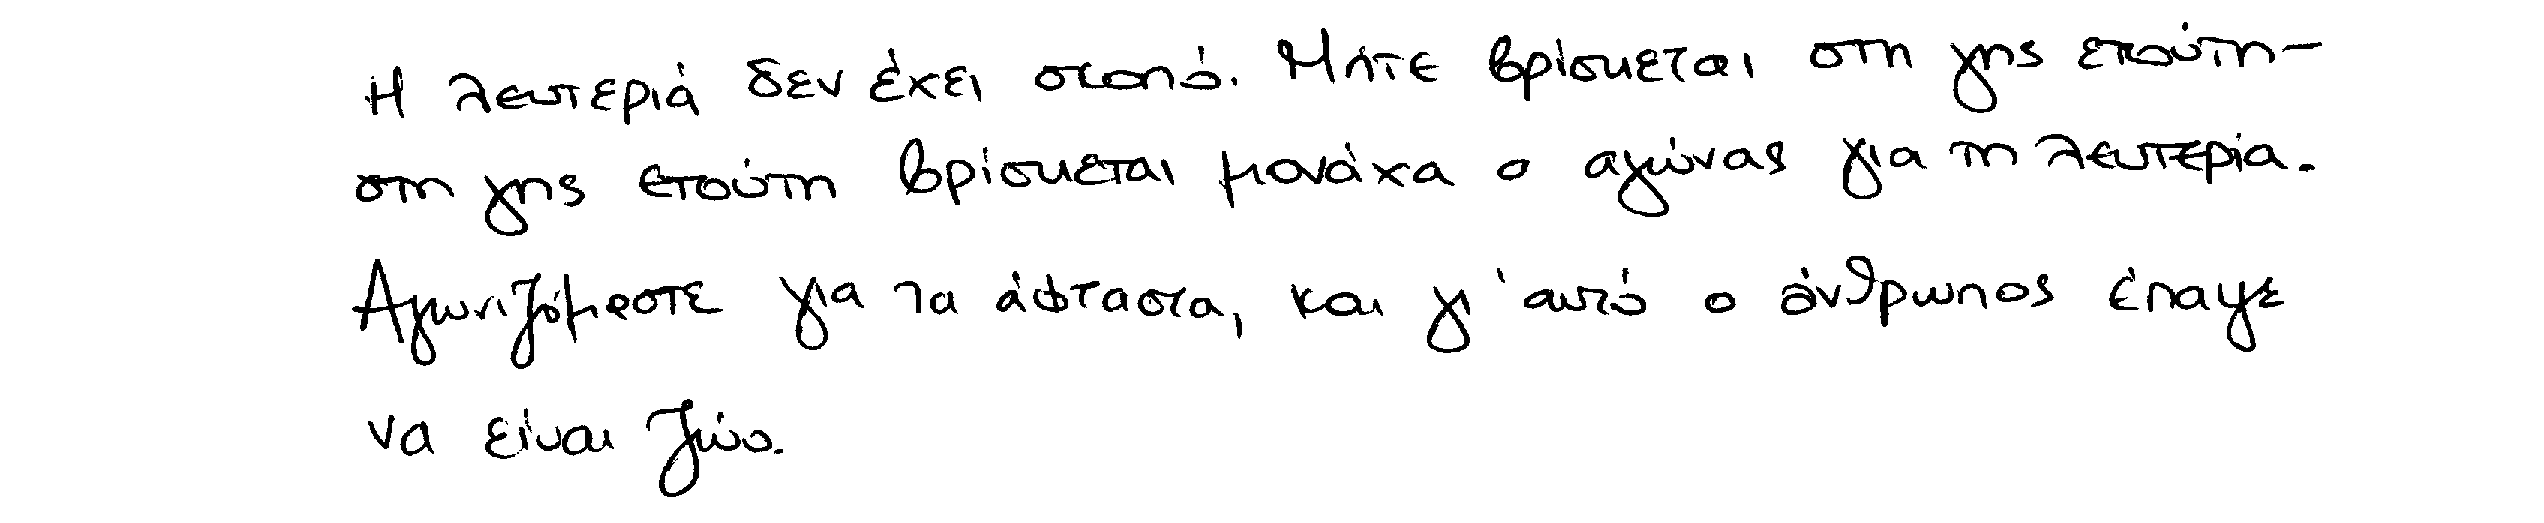 Η λευτεριά δεν έχει σκοπό. Μήτε βρίσκεται στη γης ετούτη-
στη γης ετούτη βρίσκεται μονάχα ο αγώνας για τη λευτερία.
Αγωνιζόμαστε για τα άφταστα, και γι' αυτό ο άνθρωπος έπαψε
να είναι ζώο.